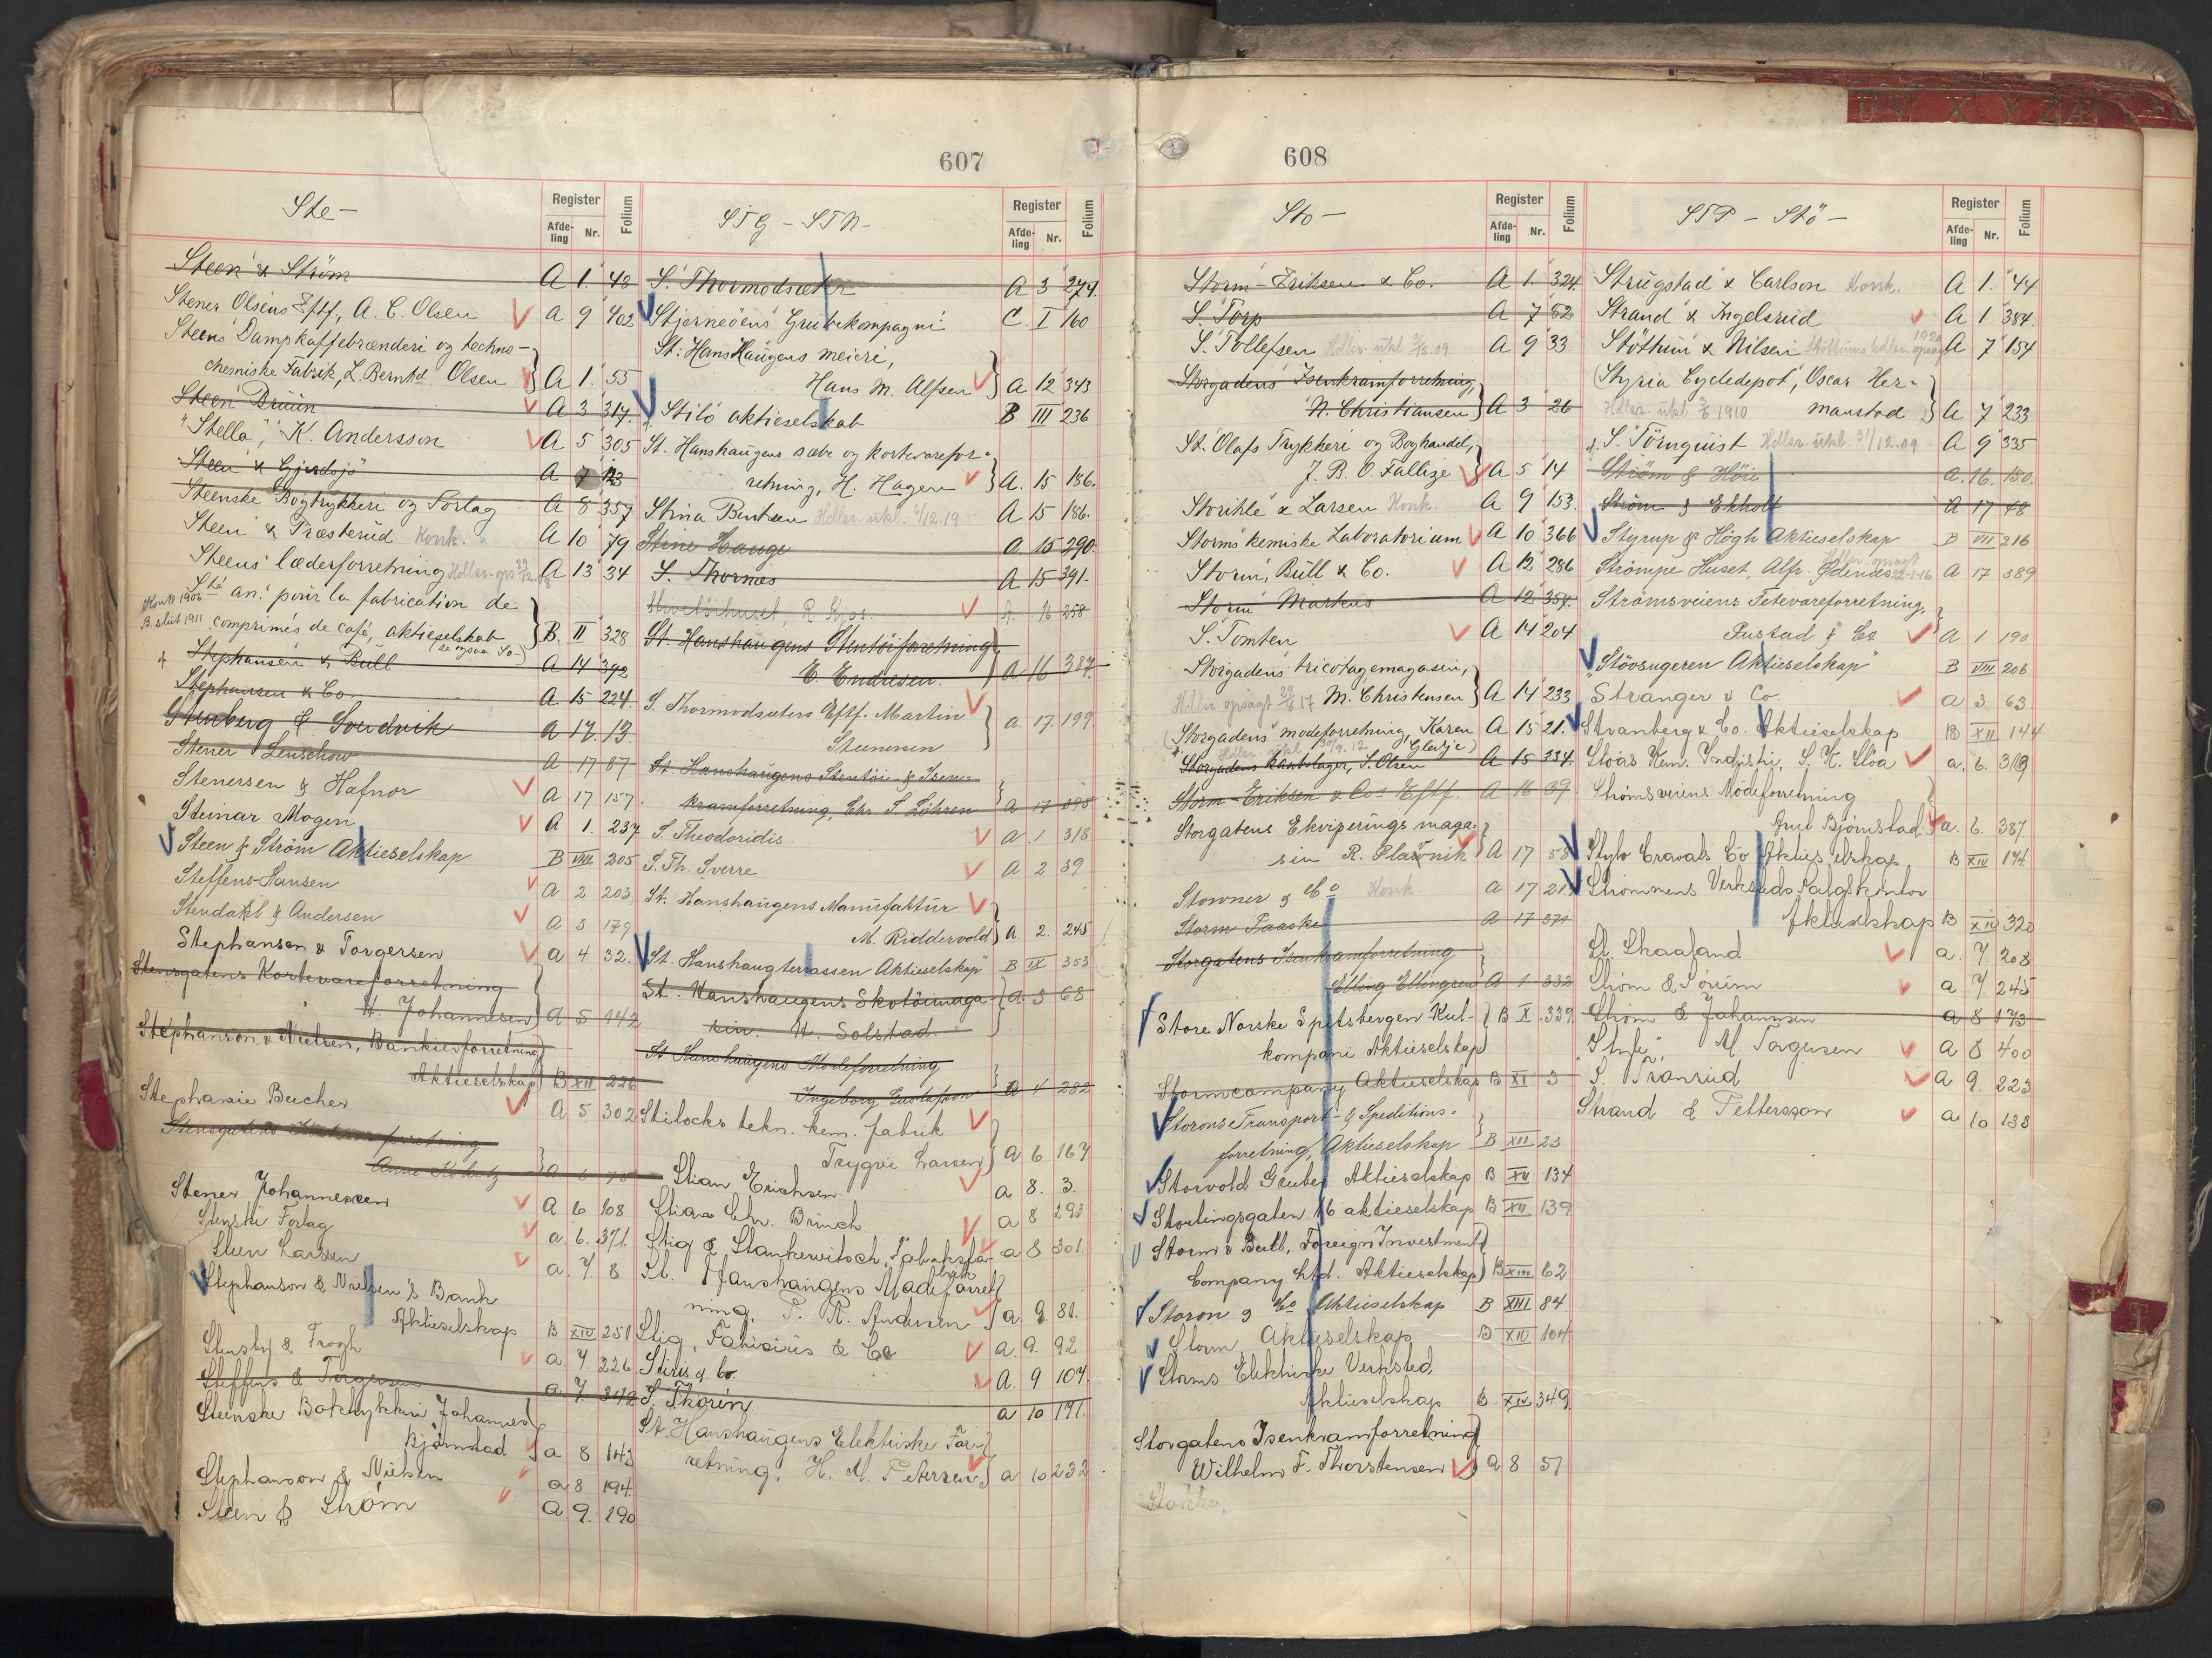 607
Ste-
Register
Afde-ling Nr. Folium
Steen & Ström A 1 48
Stener Olsens Eftf, A. C. Olsen A 9 402
Steens Dampkaffebrænderi og techno-
chemiske Fabrik, L. Bernhd Olsen A 1. 55
Steen Bruun A 3 317.
"Stella", K. Andersson A 5 305
Steen & Gjerdsjö A 7
Steenske Bogtrykkeri og Forlag A 8 357
Steen & Træsterud Konk. A 10 79
Steens læderforretning A 13 34
Sté an. pour la fabrication de
Konk 1906
B. slut 1911 comprimés de café, aktieselskab B. II 328
(se ogsaa So-)
Stephansen & Bull A 14 392
Stephansen & Co. A 15 224.
Stenberg & Svendvik A 17. 13
Stener Lenschow A 17 87
Stenersen & Hafnor A 17 157.
Steinar Mogen A 1. 237
Steen & Ström Aktieselskap B VIII 205
Steffens-Hansen A 2 203
Stendahl & Andersen A 3 179
Stephansen & Torgersen A 4 32.
Stensgatens Kortevareforretning
H. Johannesen A 5 142
Stephanson & Nielsen, Bankierforretning
Aktieselskap B XII 226
Stephanie Bucher A 5 302
Stensgatens
Stener Johannessen A 6 108
Stenske Forlag a. 6. 371.
Steen Larssen a. 7 8
Stephanson & Nielsen's Bank
Aktieselskap B XIV 251
Stensby & Trogh a 7. 226
Steffens & Torgersen a 7. 342
Steenske Boktrykkeri Johannes
Bjørnstad a 8 143
Stephanson & Nielsen a 8 194.
Steen & Ström A 9. 290
STG - STN -
Register
Afde-ling Nr. Folium
S. Thormodsæter A 3 274.
Stjerneöens Grubekompagni C. I 160
St. Hans Haugens meieri,
Hans M. Alfsen A 12 343
Stilo aktieselskab B III 236
St. Hanshaugens sæbe og kortevarefor-
retning, H. Hagen A. 15 186.
Stina Bentsen A 15 186.
Stine Hauge A 15 290.
S. Thornæs A 15 391.
A. 16 258
St. Hanshaugens Stentöiforretning,
E. Endresen. A 16 387.
S. Thormodsæters Eftf. Martin
Steenersen a. 17. 199
St. Hanshaugens Stentöi- & Isen-
kramforretning, Chr. S. Löhren A 17 398
S. Theodoridis a. 1 318
S. Th. Sverre A 2 39
St. Hanshaugens Manufaktur
M. Riddervold A. 2. 245
"St. Hanshaugterrassen Aktieselskap" B IX 353
St. Hanshaugens Skotöimaga-
sin. H. Solstad. A. 3 68
St. Hanshaugens Modeforretning
Ingeborg Gustafson a 4 282
Stilocks tekn. kem. fabrik
Trygve Larsen a 6 167
Stian Erichsen a 8. 3.
Stian Chr. Brinch. a 8 293
Stig & Stankewitsch, Tobaksfa-
brik a 8 301
St. Hanshaugens Modeforret-
ning, P. R. Andersen a. 9. 81.
Stig, Fabisius & Co a. 9. 92
Stiris & Co. A. 9 107.
S. Thorin a 10 191.
St. Hanshaugens Elektriske For-
retning, H. M. Petersen a 10 232
608
Sto -
Register
Afde-ling Nr. Folium
Storm-Eriksen & Co. A 1. 324
S. Torp A 7 52
S. Tollefsen A 9 33
Storgadens Isenkramforretning,
N. Christiansen A 3 26
St. Olafs Trykkeri og Boghandel,
J. B. O. Fallize A 5 14
Storihle & Larsen Konk. A 9 153.
Storms kemiske Laboratorium A 10 366
Storm, Bull & Co. A 12 286
Storm Markus A 12 357.
S. Tomten A 14 204
Storgadens tricotagemagasin,
M. Christensen A 14 233
(Storgadens modeforretning, Karen A 15 21.
Storgadens Kaabelager, S. Olsen A 15 334.
Storm-Eriksen & Co's Eftf. A 16 39
Storgatens Ekviperings maga-
sin R. Plavnik A 17 58
Stowner & Co Konk a 17 21
Storm Faaske A 17 371
Storgatens Isenkramforretning
Elling Ellingsen A 1 332
Store Norske Spitsbergen Kul-
kompani Aktieselskap B X 339.
Stormcompany Aktieselskap B XI 3
Storons Transport- & Speditions-
forretning, Aktieselskap B XII 23
Storvold Gruber Aktieselskap B XII 134
Stortingsgaten 16 aktieselskap B XII 139
Storm & Bull, Foreign Investment
Company Ltd. Aktieselskap B XIII 62
Storon & Co Aktieselskap B XIII 84.
Storm Aktieselskap B XIV 104
Storms Elektriske Verksted,
Aktieselskap B XIV 349.
Storgatens Isenkramforretning
Wilhelm F. Thorstensen a 8 51
STP - Stö -
Register
Afde-ling Nr. Folium
Strugstad & Carlson Konk. A 1. 44
Strand & Ingelsrud A 1 384.
Stöthun & Nilsen A 7 154
(Styria Cycledepot, Oscar Her-
manstad A 7 233
S. Törnquist Hdlsr. ukl. 31/12.09 A 9 335
Ström & Höie A. 16. 150.
Ström & Ekholt A 17 48
Styrup & Högh Aktieselskap B VII 216
Strömpe Huset, Alfr. Ødenæs A 17 389
Strömsveiens Fetevareforretning,
Rustad & Co A 1 190
"Stövsugeren Aktieselskap" B VIII 206
Stranger & Co. a 3. 63.
Stranberg & Co. Aktieselskap B XII 144
Stöa's Kem. Industri, S. K. Stöa a. 6. 319
Strömsveiens Modeforretning
Bjørnstad a. 6. 387.
Stylo Cravats Co Aktieselskap B XIV 194.
Strömmens Verksteds Salgskontor
Aktieselskap B XIV 320
St. Skaaland a. 7 208
Ström & Sörum a 7. 245
Ström & Johannsen a 8 173
M. Torgersen A 8 400
S. Tranrud a 9. 223
Strand & Pettersson a 10 138
U V X Y Z Æ